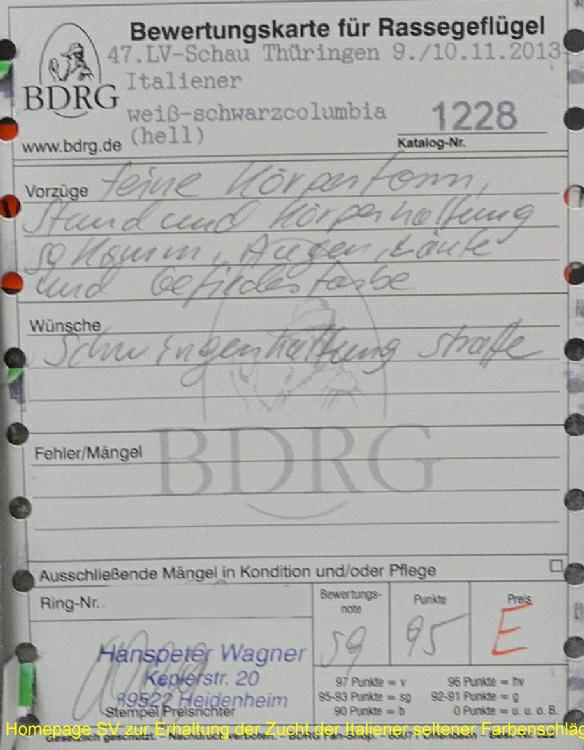 Bewertungskarte für Rassegeflügel
47.LV-Schau Thüringen 9./10.11.2013
Italiener
BDRG
weiß-schwarzcolumbia
(hell)
1228
www.bdrg.de
Katalog-Nr.
Vorzüge feine Körperform,
Stand und Körperhaltung
sg Kamm, Augen, Läufe
und Gefiederfarbe
Wünsche
Schwingenhaltung straffe
Fehler/Mängel
BDRG
Ausschließende Mängel in Kondition und/oder Pflege
Ring-Nr.
Bewertungs-
note
Punkte
Preis
sg
95
E
Hanspeter Wagner
Keplerstr. 20
89522 Heidenheim
Stempel Preisrichter
97 Punkte = v 96 Punkte = hv
95-93 Punkte = sg 92-91 Punkte = g
90 Punkte = b 0 Punkte = u. u. o. B.
Homepage SV zur Erhaltung der Zucht der Italiener seltener Farbenschläg